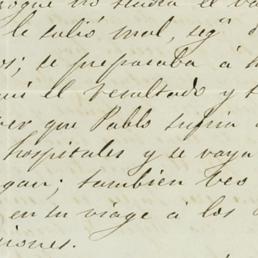 no studia el
le salió mal, segn
os; se preparaba á
el resultado y
ver que Pablo sufria
hospitales y se vaya
gan; tambien veo
en su viage á los
iones.